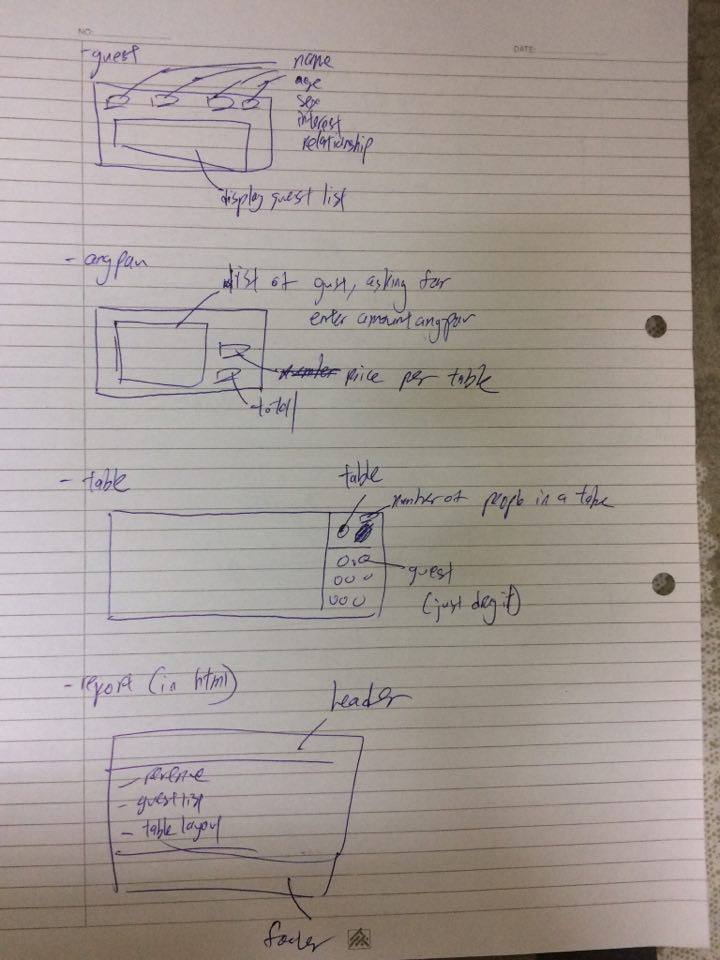 NO:
DATE:
- guest
name
age
sex
interest
relationship
display guest list
- angpau
list of gust, asking for
enter amount angpau
price per table
total
- table
table
number of people in a table
guest
(just drag it)
- report (in html)
header
- revenue
- guest list
- table layout
footer